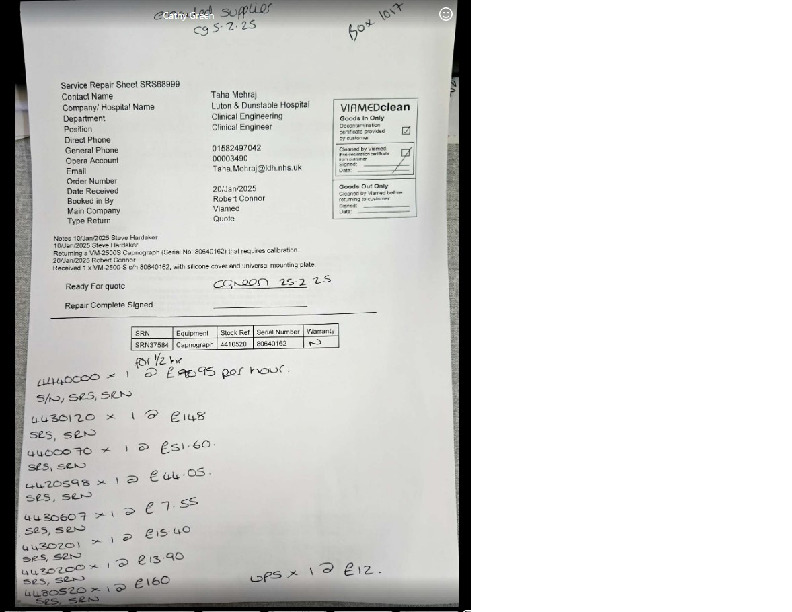 Cathy Green
supplies
cg 5.2.25
Box 1017
Service Repair Sheet SRS68999
Contact Name Taha Mehraj
Company/ Hospital Name Luton & Dunstable Hospital
Department Clinical Engineering
Position Clinical Engineer
Direct Phone
General Phone 01582497042
Opera Account 00003490
Email Taha.Mehraj@ldh.nhs.uk
Order Number
Date Received 20/Jan/2025
Booked in By Robert Connor
Main Company Viamed
Type Return Quote
VIAMEDclean
Goods In Only
Decontamination
certificate provided
by customer
Cleaned by Viamed
Signed:
Date:
Goods Out Only
Cleaned by Viamed before
returning to customer
Signed:
Date:
Notes 10/Jan/2025 Steve Hardaker
10/Jan/2025 Steve Hardaker
Returning a VM-2500S Capnograph (Serial No: 80640162) that requires calibration.
20/Jan/2025 Robert Connor
Received 1 x VM-2500-S s/n 80640162, with silicone cover and universal mounting plate.
Ready For quote CGreen 25.2 25
Repair Complete Signed
SRN Equipment Stock Ref Serial Number Warranty
SRN37584 Capnograph 4410520 80640162 NO
for 1/2 hr
4440000 x 1 @ £90.95 per hour.
S/N, SRS, SRN
4430120 x 1 @ £148
SRS, SRN
4400070 x 1 @ £51.60.
SRS, SRN
4420598 x 1 @ £44.05.
SRS, SRN
4430607 x 1 @ £7.55
SRS, SRN
4430201 x 1 @ £15.40
SRS, SRN
4430200 x 1 @ £13.90
SRS, SRN
4480520 x 1 @ £160
SRS, SRN
UPS x 1 @ £12.